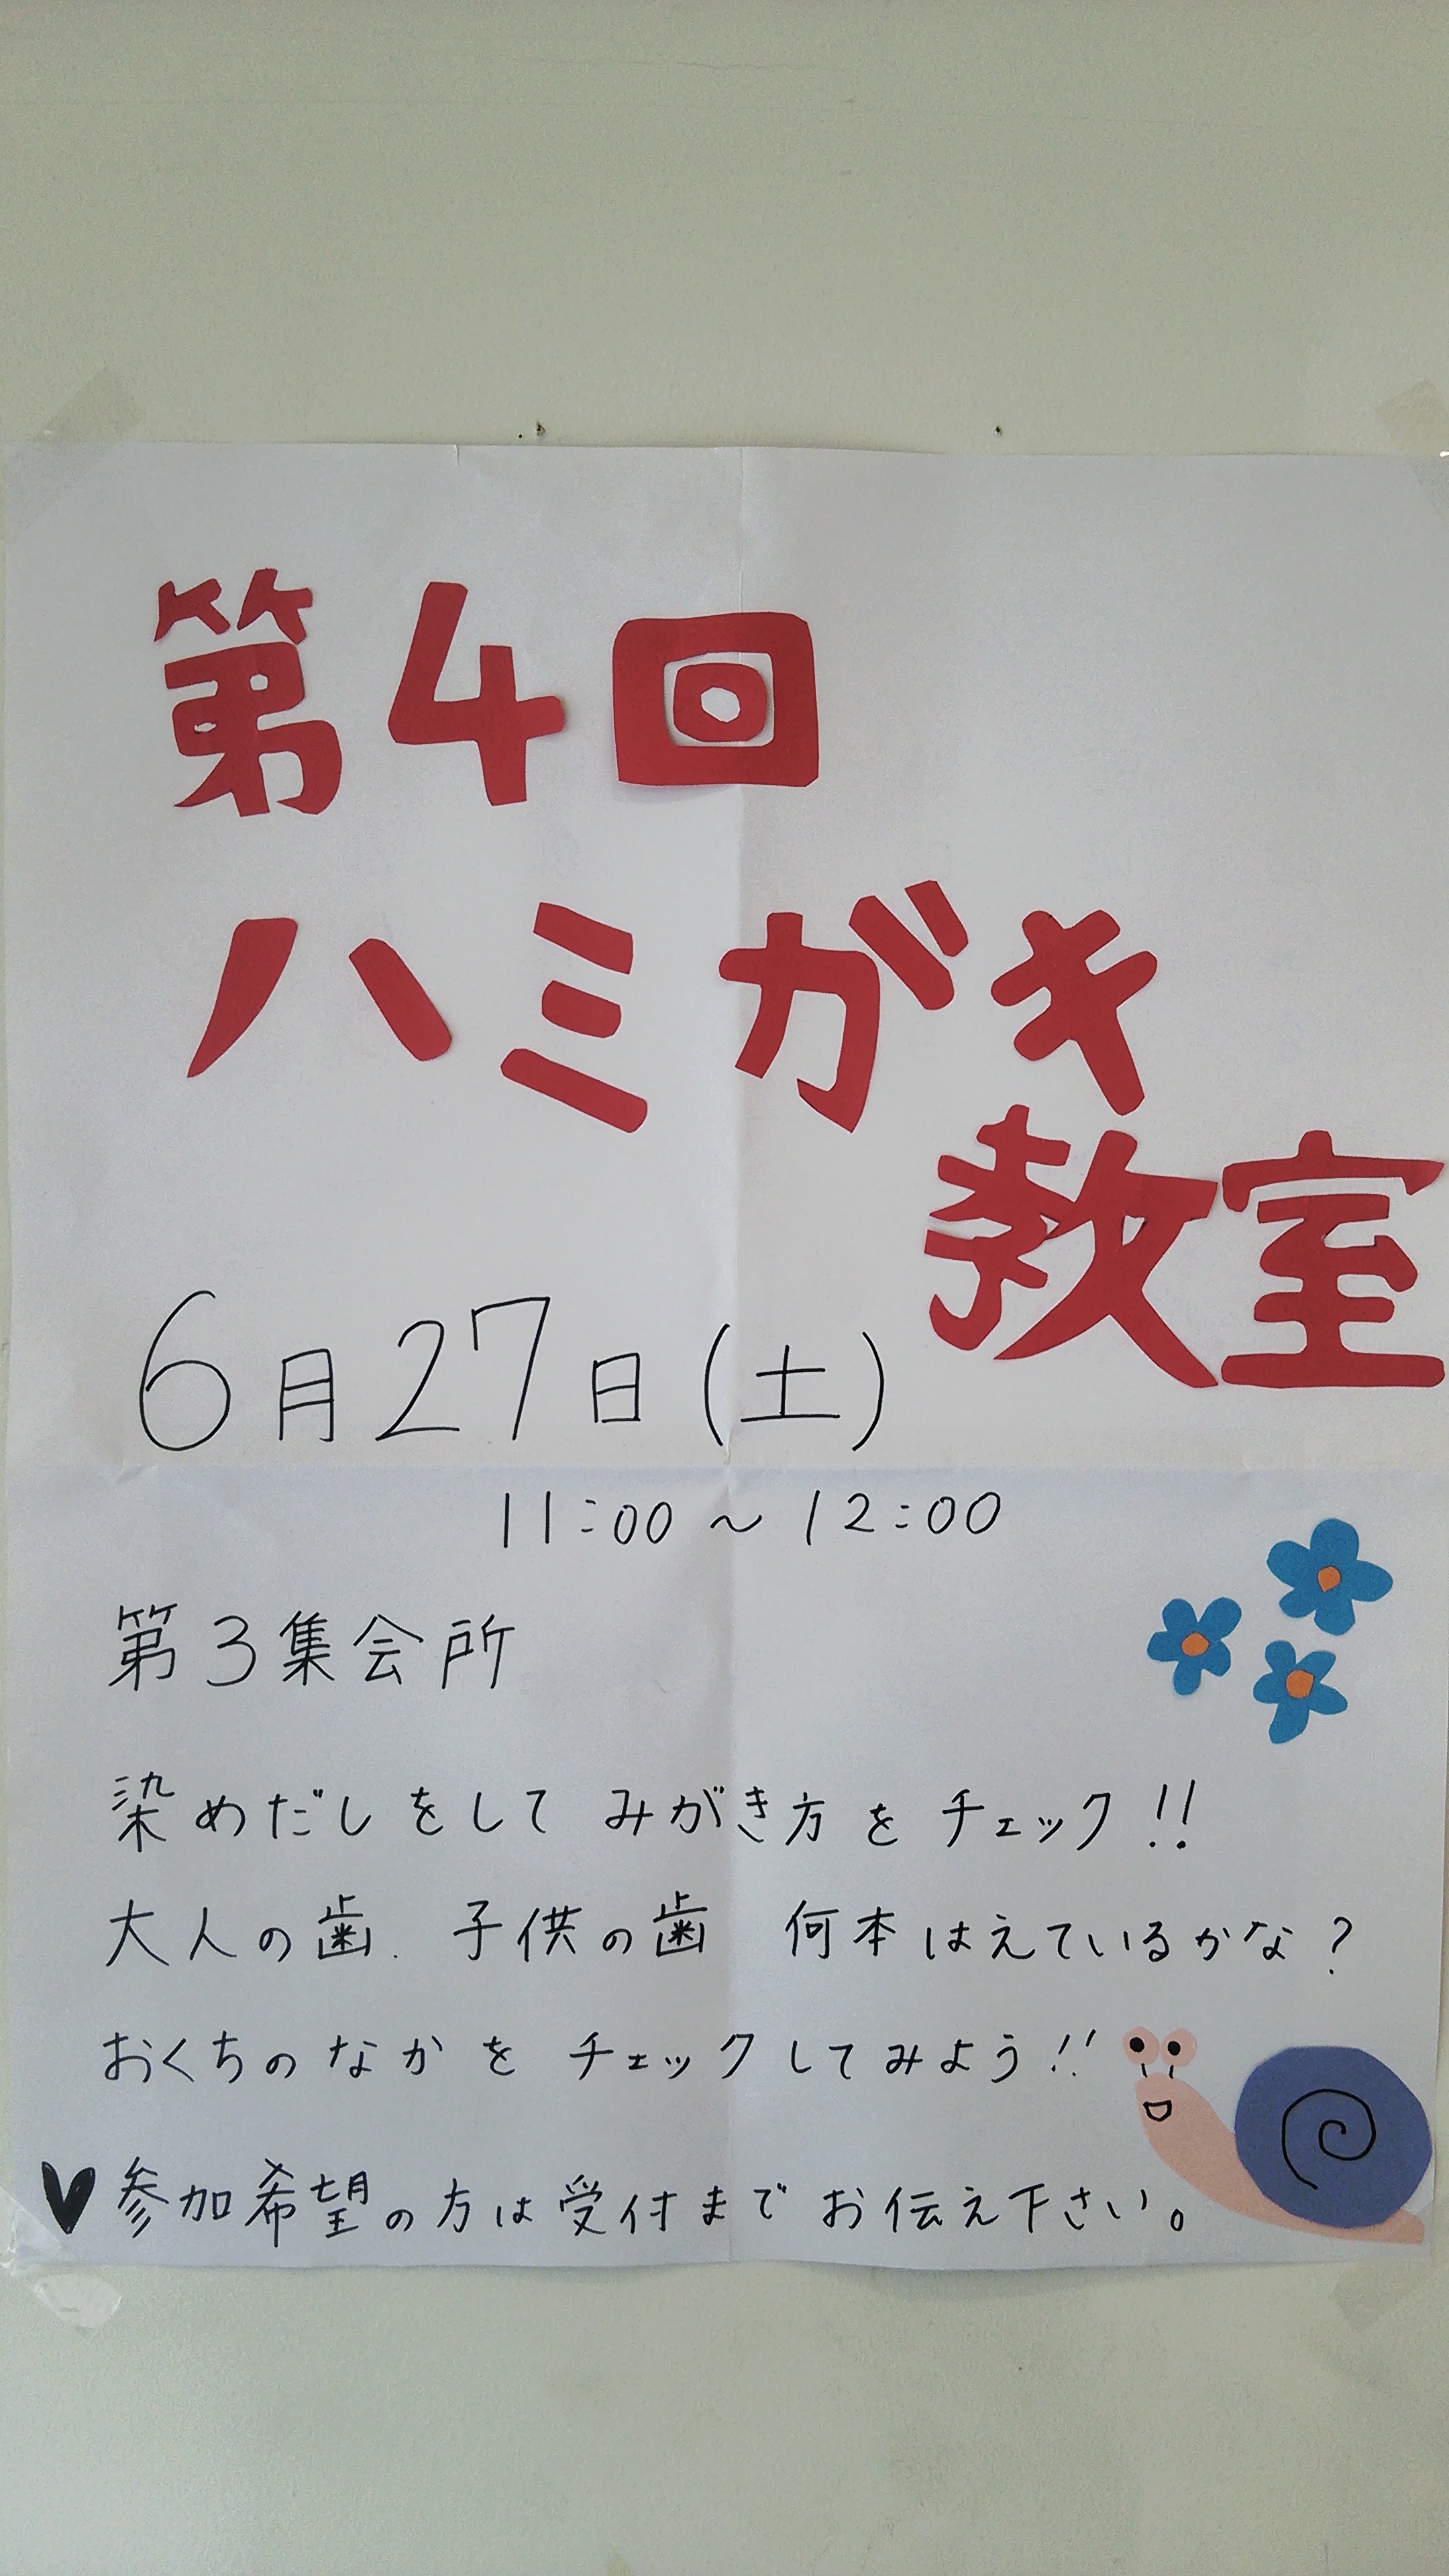 第4回
ハミがキ
教室
6月27日(土)
11:00～12:00
第3集会所
染めだしをしてみがき方をチェック!!
大人の歯. 子供の歯 何本はえているかな?
おくちのなかをチェックしてみよう!!
♥参加希望の方は受付までお伝え下さい。